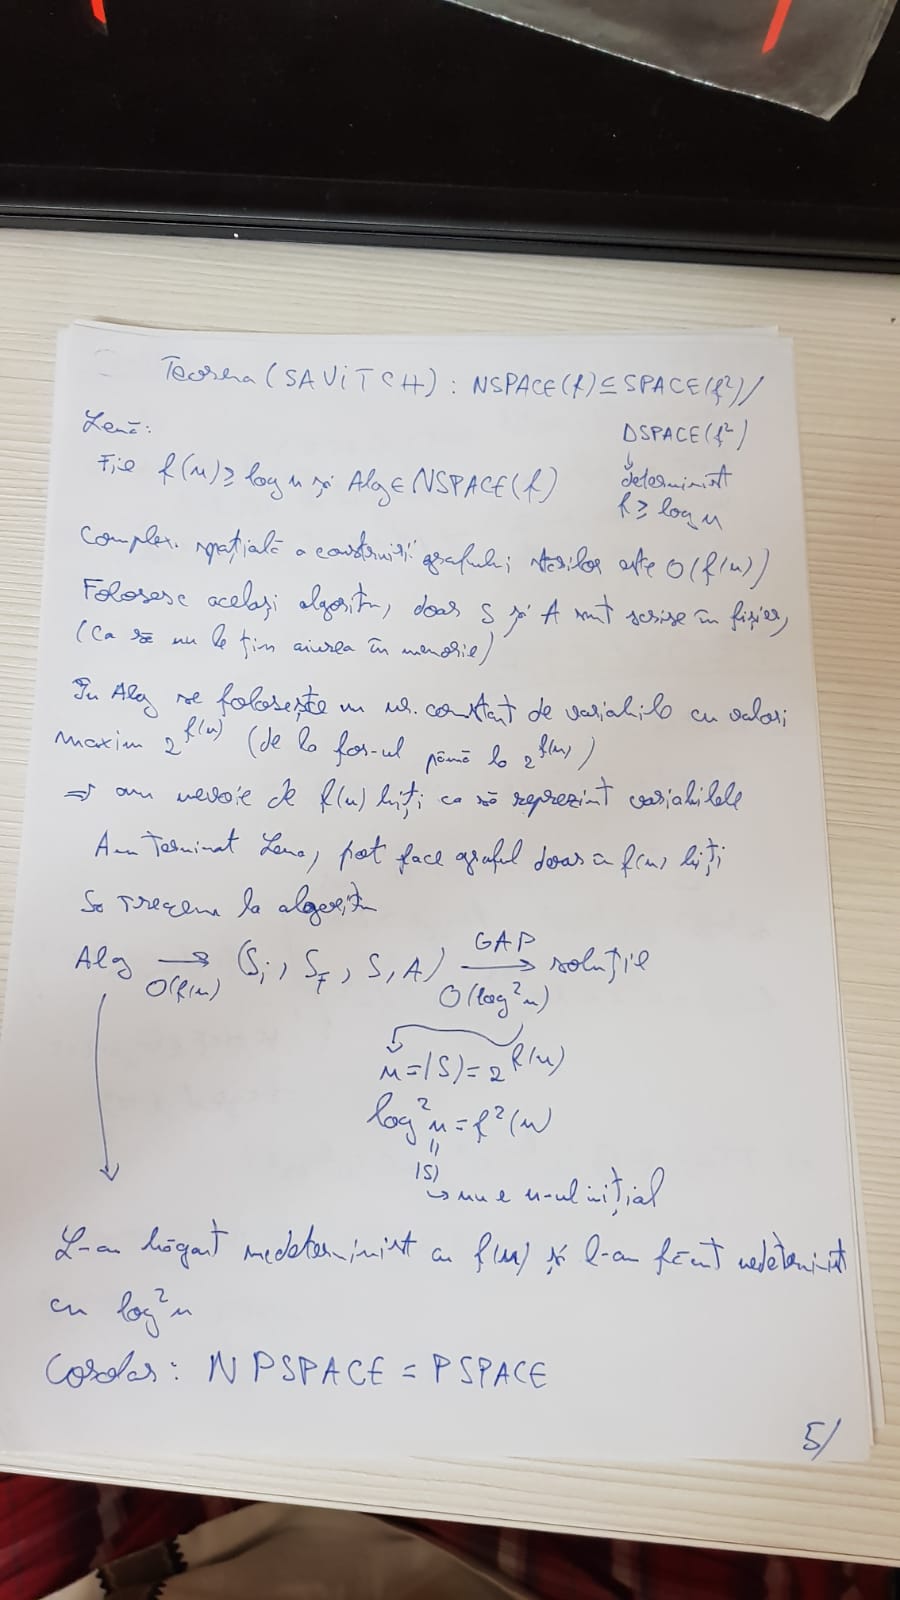 Teorema (SAVITCH): NSPACE(f) ⊆ SPACE(f²)/
DSPACE(f²)
↓
determinist
f ≥ log n
Lemă:
Fie f(n) ≥ log n și Alg ∈ NSPACE(f)
Complex. spațială a construirii grafului stărilor este O(f(n))
Folosesc același algoritm, doar S și A sunt scrise în fișier,
(Ca să nu le țin aiurea în memorie)
În Alg se folosește un nr. constant de variabile cu valori
maxim 2^f(n) (de la for-ul până la 2^f(n))
⇒ am nevoie de f(n) biți ca să reprezint variabilele
Am terminat Lema, pot face graful doar în f(n) biți
Să trecem la algoritm
Alg → (Si, Sf, S, A) → soluție
O(f(n)) GAP O(log²n)
n = |S| = 2^f(n)
log²n = f²(n)
||
|S|
↳ nu e n-ul inițial
L-am băgat nedeterminist cu f(n) și l-am făcut nedeterminist
cu log²n
Corolar: NPSPACE = PSPACE
5/